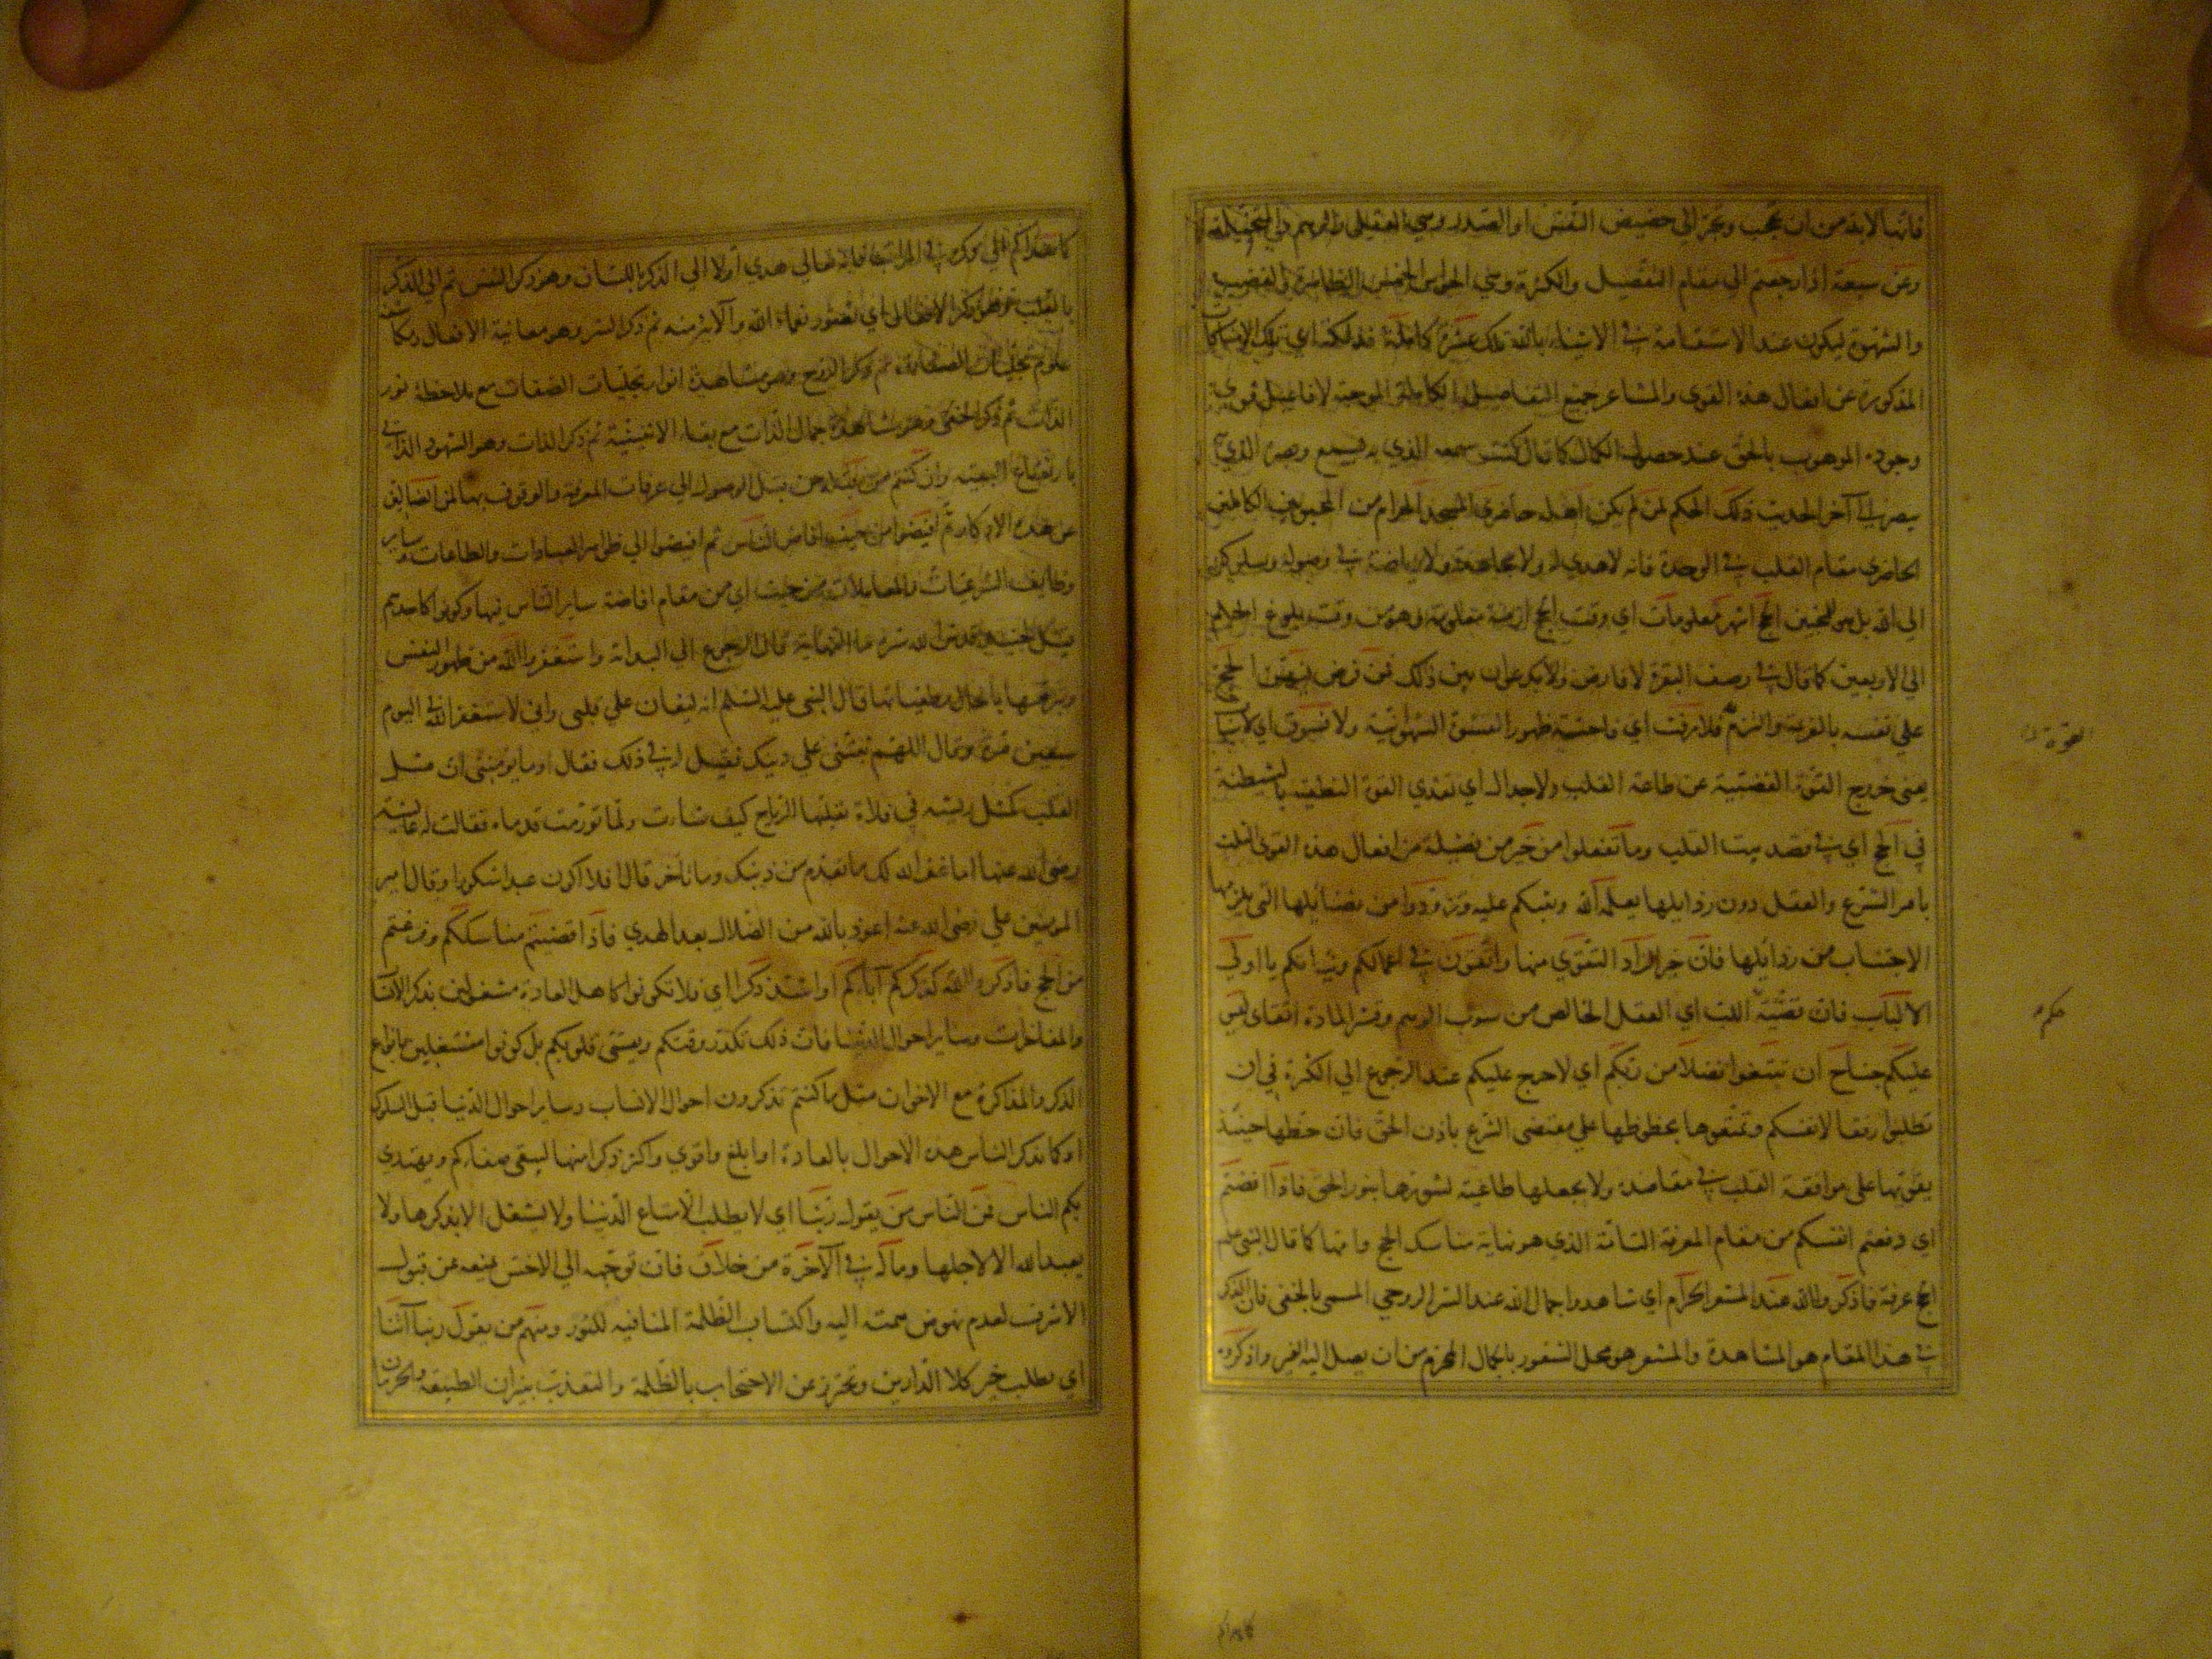 فانها لابد من ان تحجب وتجر الي حضيض النفس او الصدر وهي العقيلي والوهم والمتخيلة
وعن سبعة اذا رجعتم الي مقام التفصيل والكثرة وهي الحواس الخمس الظاهرة والغضب
والشهوة ليكون عند الاستقامة في الاشياء بالله تلك عشرة كاملة فذلكة اي تلك الامساكات
المذكورة عن افعال هذه القوي والمشاعر جميع التفاصيل الكاملة الموجبة لافاعيل قوي
وجوده الموهوب بالحق عند حصول الكمال كما قال كنت سمعه الذي به يسمع وبصره الذي به
يبصر الي آخر الحديث ذلك الحكم لمن لم يكن اهله حاضري المسجد الحرام من المحبوبين الكاملين
الحاضري مقام القلب في الوحدة فانه لا هدي له ولا مجاهدة ولا رياضة في وصوله وسلوكه
الي الله بل هو للمحبين الحج اشهر معلومات اي وقت الحج ازمنة معلومة وهو من وقت بلوغ الحلم
الي الاربعين كما قال في وصف البقرة لا فارض ولا بكر عوان بين ذلك فمن فرض فيهن الحج
علي نفسه بالعزيمة والتزم فلا رفث اي فاحشة ظهور القوة الشهوانية ولا فسوق اي لاسباب
يعني خروج القوة الغضبية عن طاعة القلب ولا جدال اي تعدي القوة النطقية بالشيطنة
في الحج اي في قصد بيت القلب وما تفعلوا من خير من فضيلة من افعال هذه القوي الثلث
بامر الشرع والعقل دون رذايلها يعلمه الله ويثبكم عليه وتزودوا من فضائلها التي يلزمها
الاجتناب عن رذائلها فان خير الزاد التقوي منها واتقون في اعمالكم ونياتكم يا اولي
الالباب فان قضية اللب اي العقل الخالص من شوب الوهم وقشر المادة اتقائي ليس
عليكم جناح ان تبتغوا فضلا من ربكم اي لا حرج عليكم عند الرجوع الي الكثرة في ان
تطلبوا رفقا لانفسكم وتمتعوها بحظوظها علي مقتضي الشرع باذن الحق فان حظها حينئذ
يقويها علي موافقة القلب في مقاصده ولا يجعلها طاغية لتنورها بنور الحق فاذا افضتم
اي دفعتم انفسكم من مقام المعرفة التامة الذي هو نهاية مناسك الحج وامها كما قال النبي علم
الحج عرفة فاذكروا الله عند المشعر الحرام اي شاهدوا جمال الله عند السر الروحي المسمي بالخفي فان الذكر
في هذا المقام هو المشاهدة والمشعر هو محل الشعور بالجمال المحرم من ان يصل اليه الغير واذكروه
القوة
حكم
كما هداكم
كما هداكم الي ذكره في المراتب فانه تعالي هدي اولا الي الذكر باللسان وهو ذكر النفس ثم الي الذكر
بالقلب وهو ذكر الافعال اي تصور نعماء الله وآلائه منه ثم ذكر السر وهو معاينة الافعال ومكاشفة
علوم تجليات الصفات ثم ذكر الروح وهو مشاهدة انوار تجليات الصفات مع ملاحظة نور
الذات ثم ذكر الخفي وهو مشاهدة جمال الذات مع بقاء الاثنينية ثم ذكر الذات وهو الشهود الذاتي
بارتفاع البقية وان كنتم من قبله من قبل الوصول الي عرفات المعرفة والوقوف بها لمن الضالين
عن هذه الاذكار ثم افيضوا من حيث افاض الناس ثم افيضوا الي ظواهر العبادات والطاعات وساير
وظايف الشرعيات والمعاملات من حيث اي من مقام افاضة ساير الناس فيها وكونوا كاحدهم
قيل لجنيد قدس الله سره ما النهاية قال الرجوع الي البداية واستغفروا الله من ظهور النفس
وتبرمها بالحال وطغيانها قال النبي عليه السلم انه ليغان علي قلبي واني لاستغفر الله في اليوم
سبعين مرة وقال اللهم ثبتني علي دينك فقيل له في ذلك فقال او ما يؤمنني ان مثل
القلب كمثل ريشة في فلاة تقلبها الرياح كيف شاءت ولما تورمت قدماه فقالت له عايشة
رضي الله عنها اما غفر الله لك ما تقدم من ذنبك وما تأخر قال افلا اكون عبدا شكورا وقال امير
المومنين علي رضي الله عنه اعوذ بالله من الضلال بعد الهدي فاذا قضيتم مناسككم وفرغتم
من الحج فاذكروا الله كذكركم آباءكم او اشد ذكرا اي فلا تكونوا كاهل العادة مشغولين بذكر الانساب
والمفاخرات وساير احوال الدنيا فان ذلك تكدر وقتكم ويقسي قلوبكم بل كونوا مشتغلين بانواع
الذكر والمذاكرة مع الاخوان مثل ما كنتم تذكرون احوال الانساب وساير احوال الدنيا قبل السلوك
او كما يذكر الناس هذه الاحوال بالعادة او ابلغ واقوي واكثر ذكرا منها ليبقي صفاءكم ويهتدي
بكم الناس فمن الناس من يقول ربنا اي لا يطلب الا متاع الدنيا ولا يشتغل الا بذكرها ولا
يعبد الله الا لاجلها وما له في الآخرة من خلاق فان توجهه الي الاخس يمنعه عن قبول
الاشرف لعدم نهوض همته اليه واكتساب الظلمة المنافيه للنور ومنهم من يقول ربنا آتنا
اي يطلب خير كلا الدارين ويحترز عن الاحتجاب بالظلمة والتعذب بنيران الطبيعة والحرمان